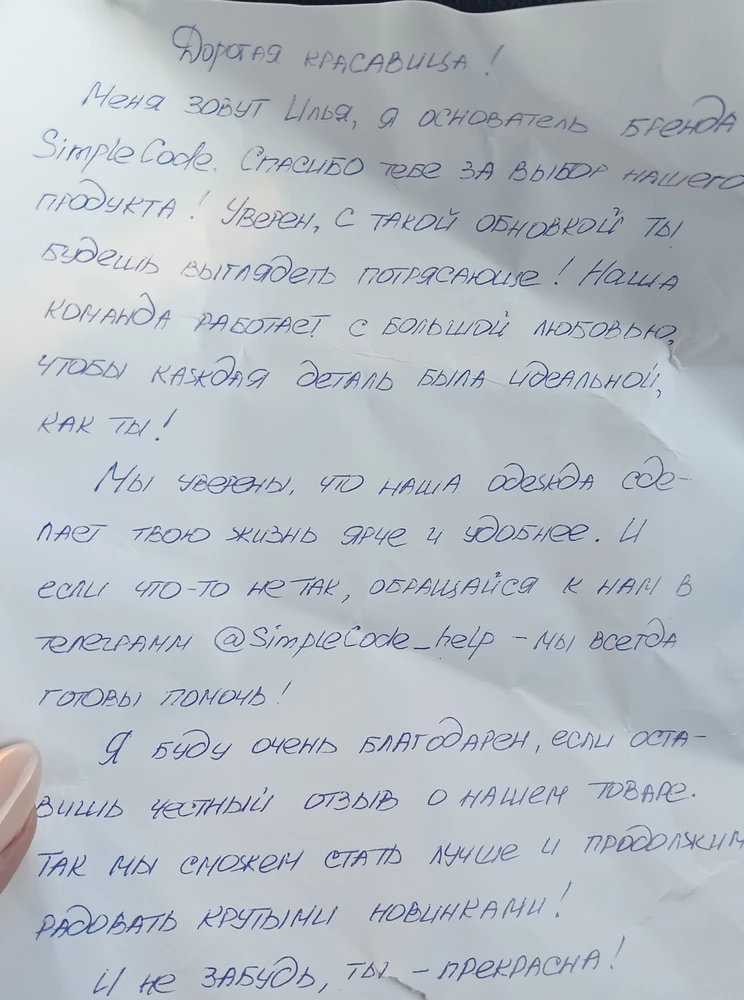 Дорогая красавица!
Меня зовут Илья, я основатель бренда
SimpleCode. Спасибо тебе за выбор нашего
продукта! Уверен, с такой обновкой ты
будешь выглядеть потрясающе! Наша
команда работает с большой любовью,
чтобы каждая деталь была идеальной,
как ты!
Мы уверены, что наша одежда сде-
лает твою жизнь ярче и удобнее. И
если что-то не так, обращайся к нам в
телеграмм @SimpleCode_help - мы всегда
готовы помочь!
Я буду очень благодарен, если оста-
вишь честный отзыв о нашем товаре.
Так мы сможем стать лучше и продолжим
радовать крутыми новинками!
И не забудь, ты - прекрасна!